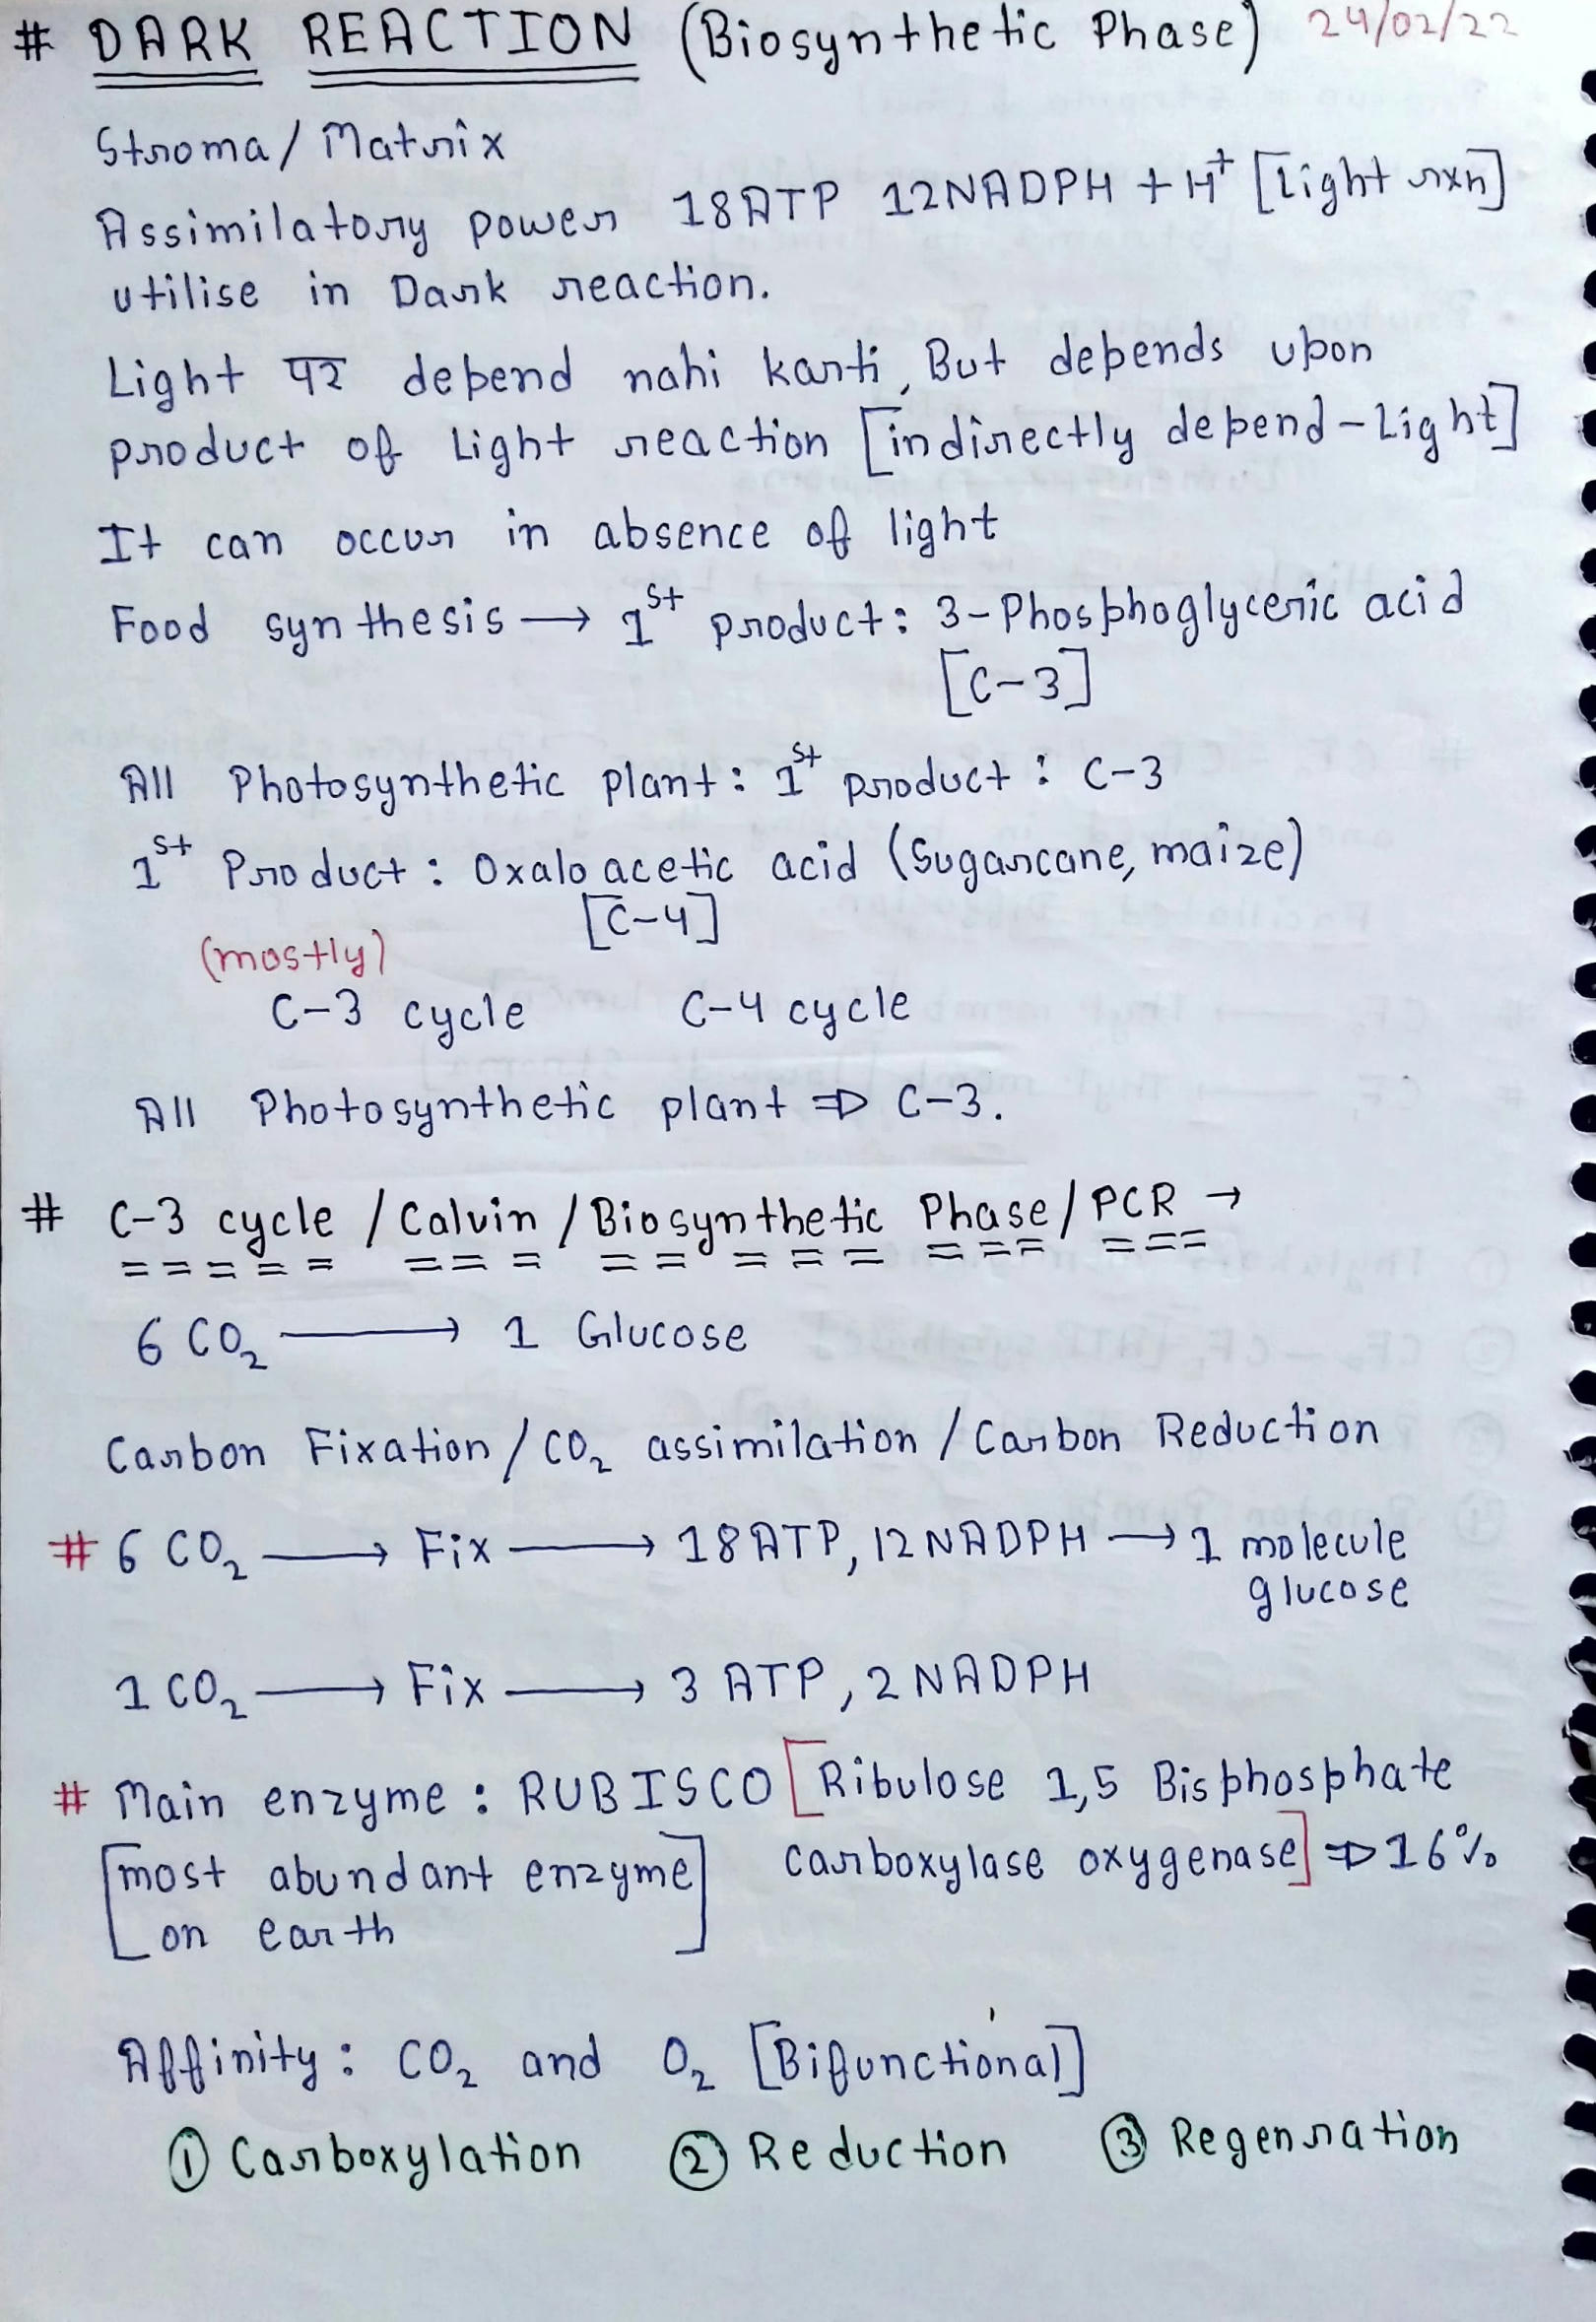 # DARK REACTION (Biosynthetic Phase) 24/02/22
Stroma / Matrix
Assimilatory power 18ATP 12NADPH + H⁺ [Light rxn]
utilise in Dark reaction.
Light पर depend nahi karti, But depends upon
product of Light reaction [indirectly depend-Light]
It can occur in absence of light
Food synthesis → 1st product: 3-Phosphoglyceric acid
[C-3]
All Photosynthetic plant: 1st product : C-3
1st Product : Oxalo acetic acid (Sugarcane, maize)
[C-4]
(mostly)
C-3 cycle C-4 cycle
All Photosynthetic plant ⇒ C-3.
# C-3 cycle / Calvin / Biosynthetic Phase / PCR →
6 CO₂ → 1 Glucose
Carbon Fixation / CO₂ assimilation / Carbon Reduction
# 6 CO₂ → Fix → 18ATP, 12NADPH → 1 molecule
glucose
1 CO₂ → Fix → 3 ATP, 2 NADPH
# Main enzyme : RUBISCO [Ribulose 1,5 Bisphosphate
[most abundant enzyme carboxylase oxygenase] ⇒ 16%
on earth]
Affinity : CO₂ and O₂ [Bifunctional]
① Carboxylation ② Reduction ③ Regenration